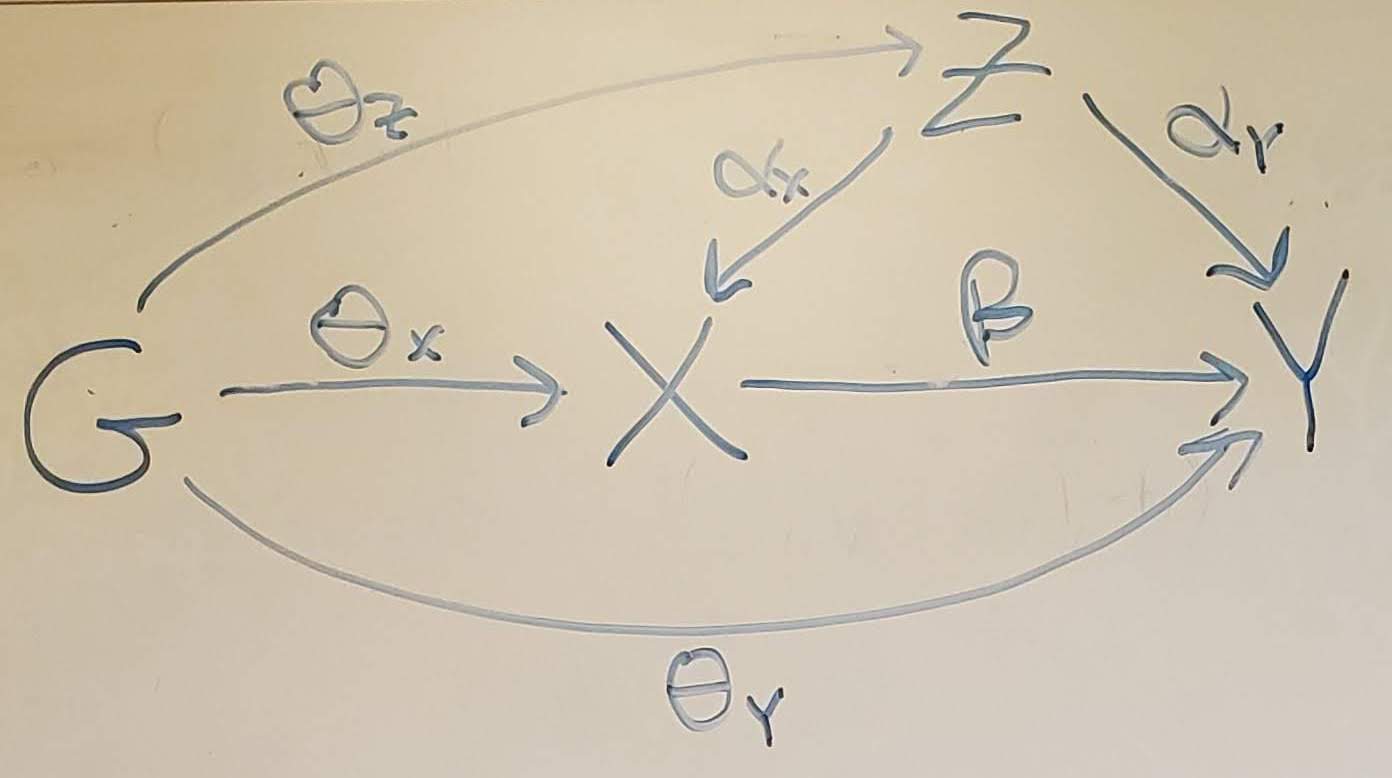 Z
θz
αx
αY
G
θx
X
β
Y
θY